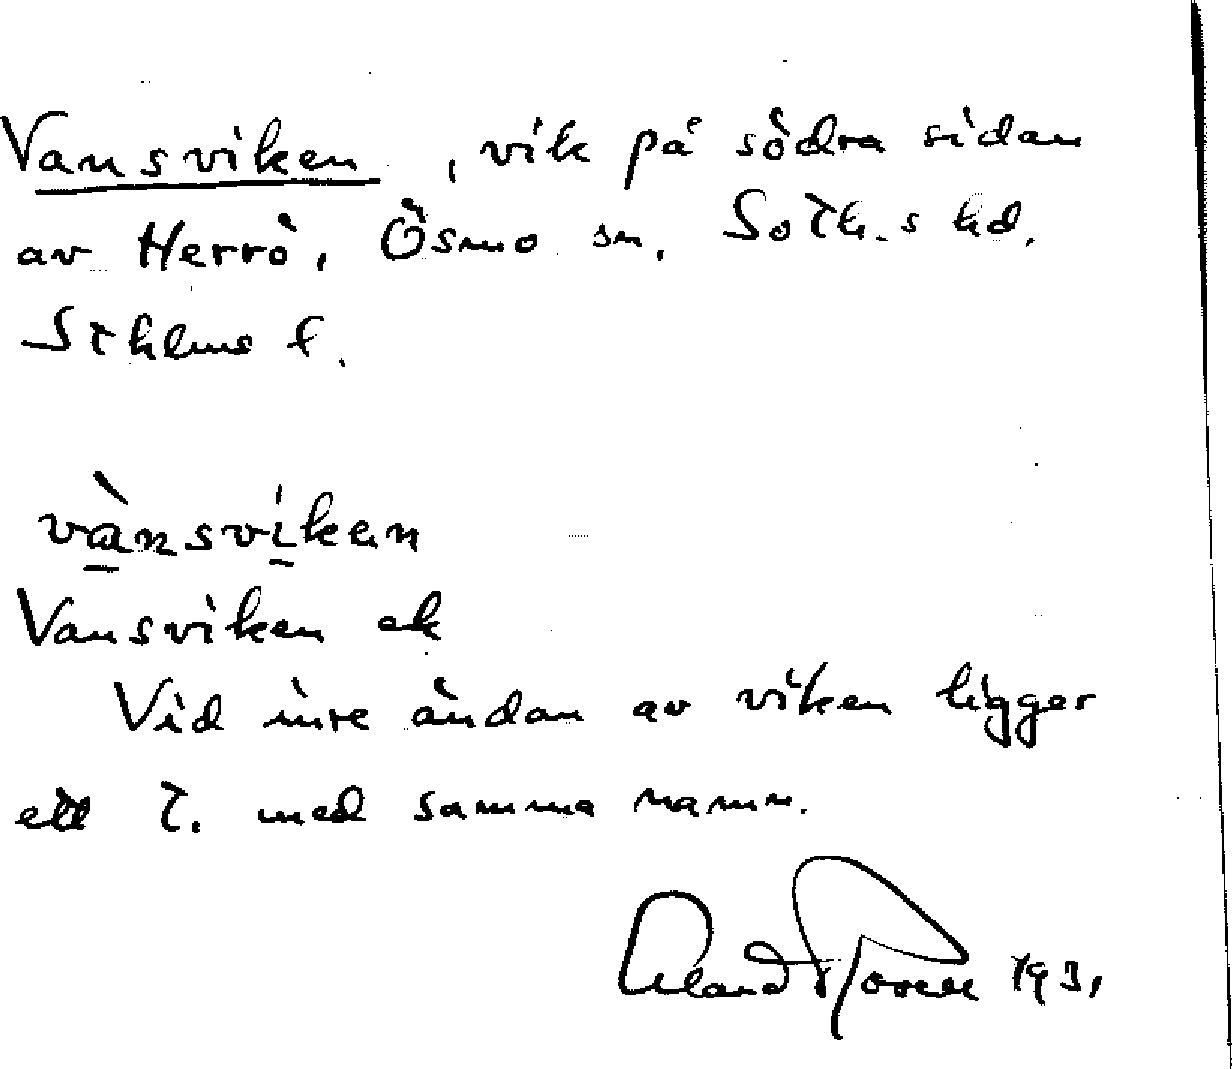 Vansviken, vik på södra sidan
av Herrö, Ösmo sn, Soth.s hd.
Sthlms l.
vànsvikən
Vansviken ek
Vid inre ändan av viken ligger
ett t. med samma namn.
1931